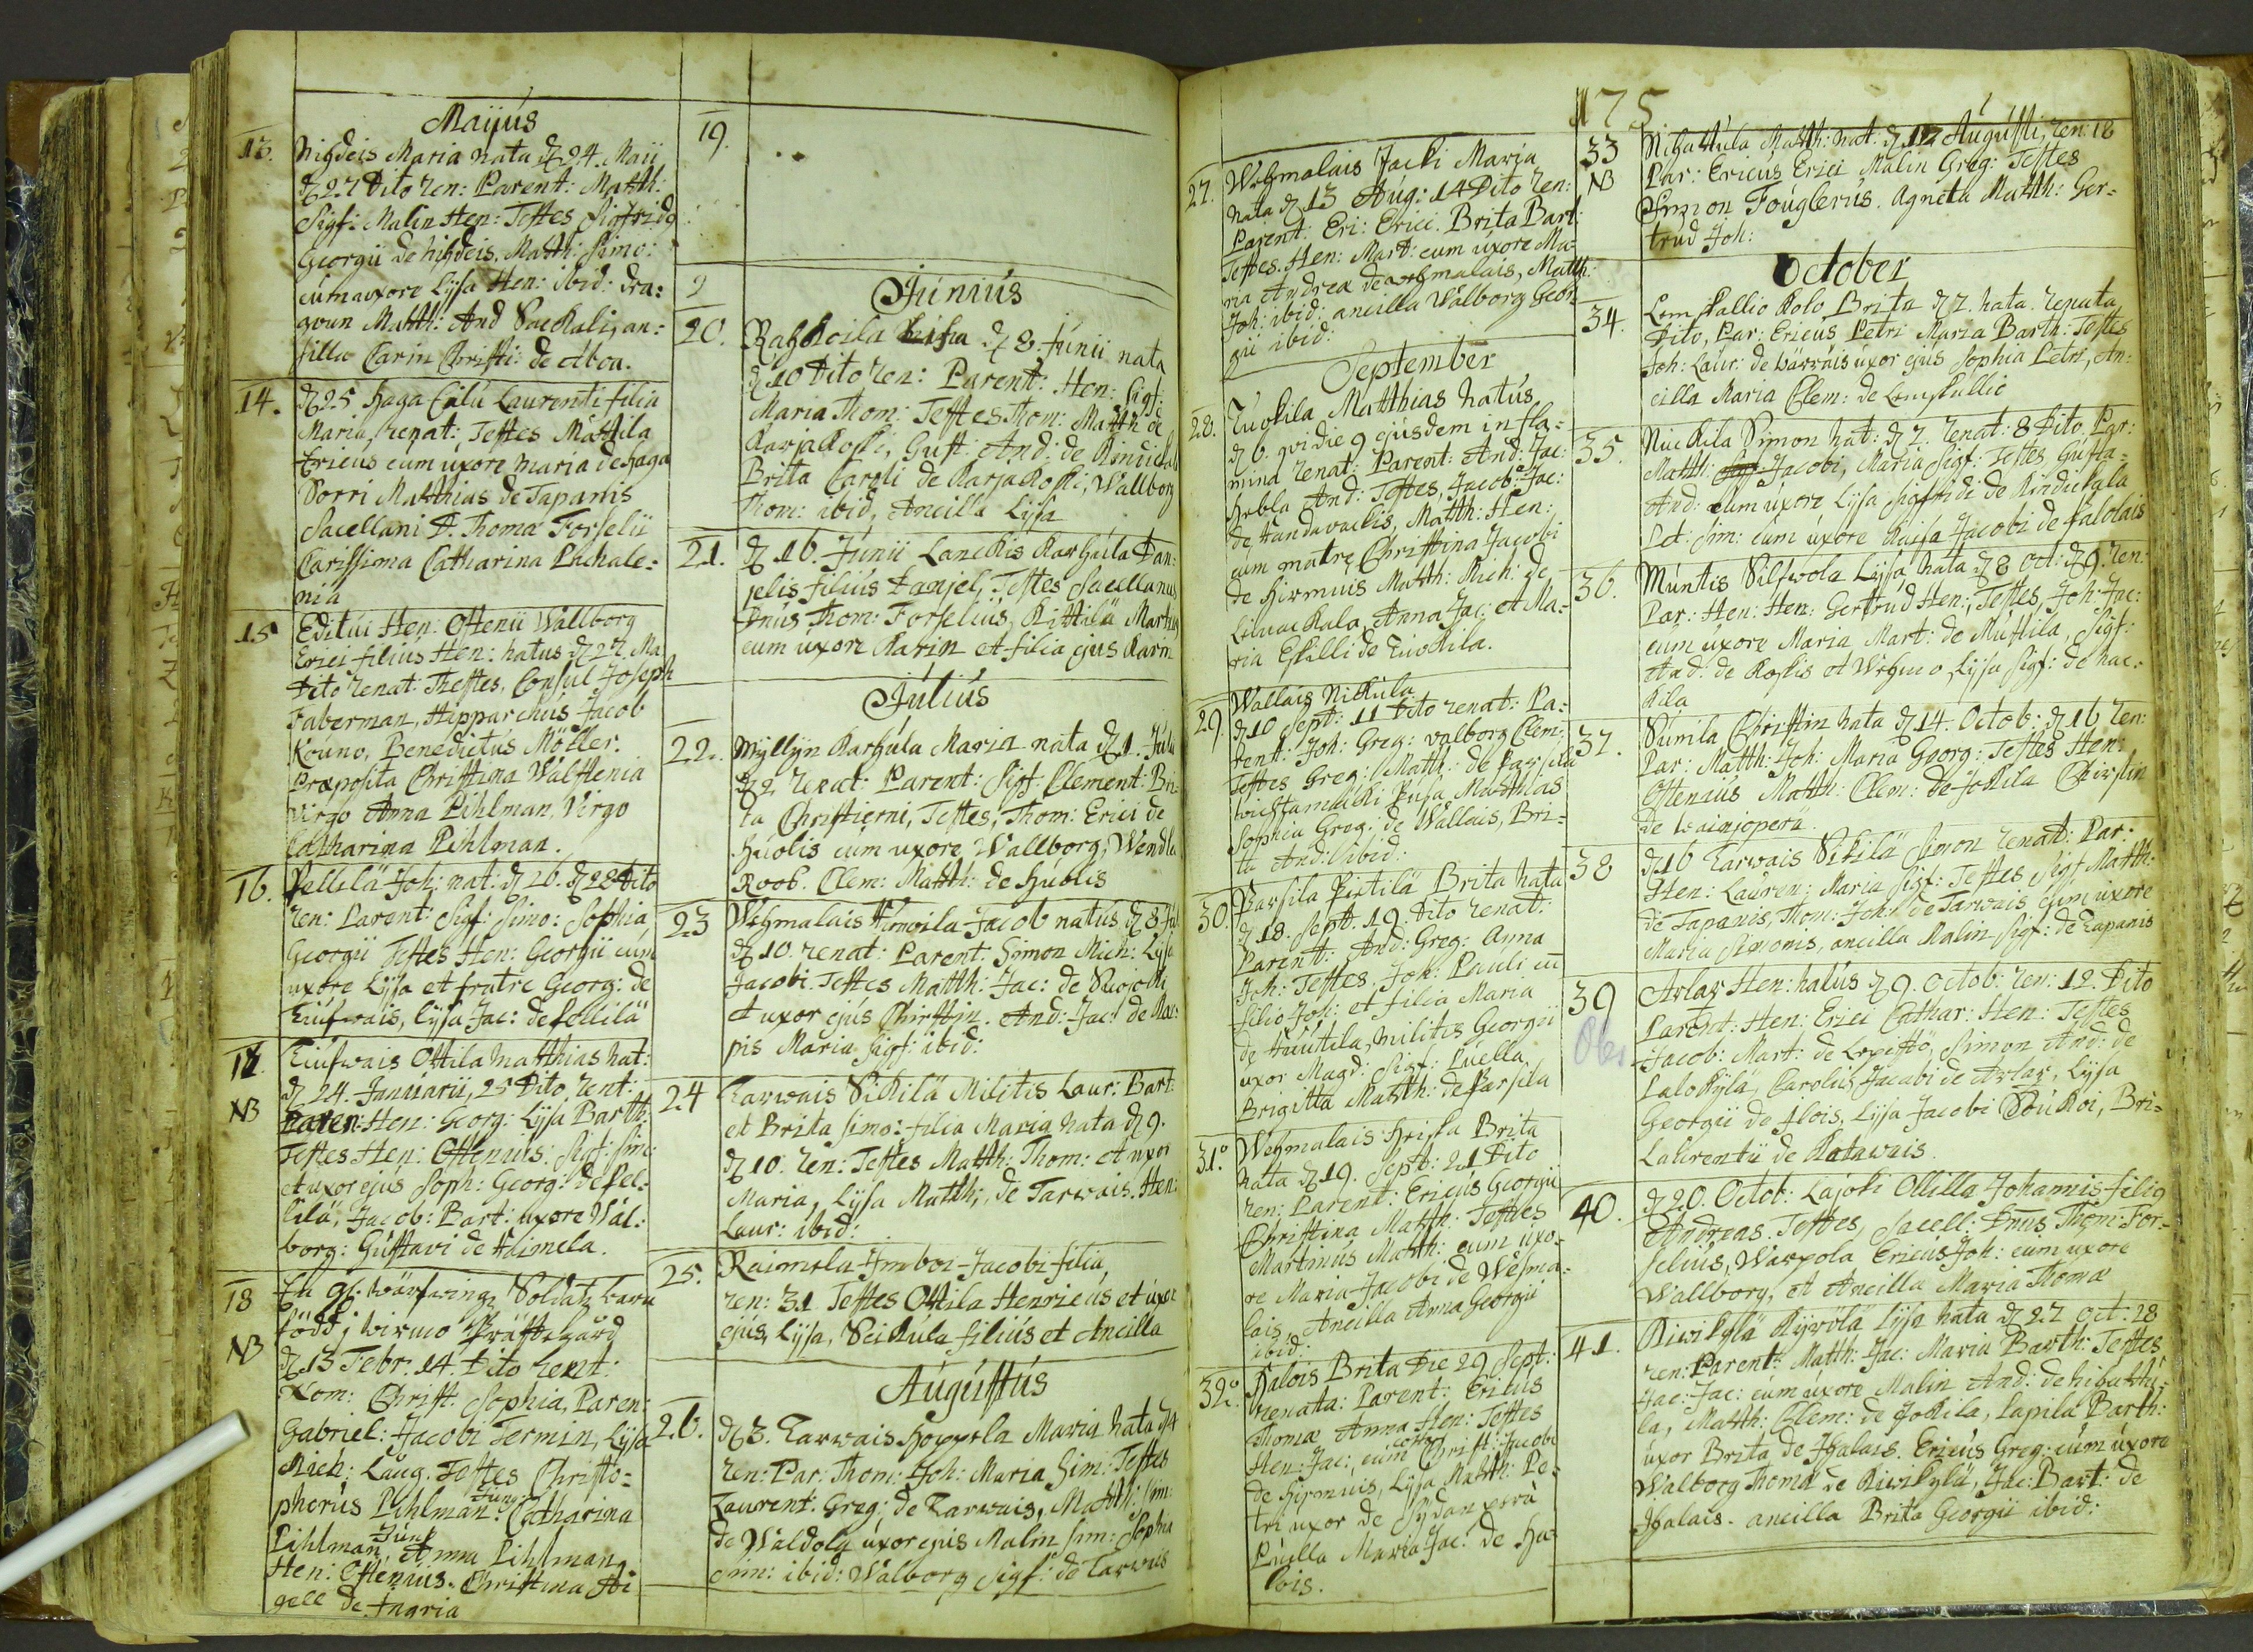 Maijus
13. Nihdeis Maria nata d 24. Maii
d 27 Dito ren: Parent: Matth:
Sigf: Malin Hen: Testes Sigfrid9
Georgii de Nihdeis. Matth: Simo:
cum uxore Lijsa Hen: ibid: dra:
goun Matth: And Sackali, an:
silla Carin Christi: de Aboa.
14. d 25 Haga Cálú Laurenti filia
Maria, renat: Testes Mattila
Ericus cum uxore Maria de Haga
Sorri Matthias de Tapanis
Sacellani D. Thomæ Forselii
Carissima Catharina Pachale:
nia
15 Editui Hen: Ostenii Wallborg
Erici filius Hen: natus d 27. Ma
Dito renat: Thestes. Consul Joseph
Faberman, Hipparchus Jacob
Kouno, Benedictus Möller.
Præposita Christina Walstenia
Virgo Anna Pihlman, Virgo
Catharina Pihlman.
16. Pellilä Joh: nat: d 26. d 28 Dito
ren: Parent: Sigf: Simo: Sophia
Georgii Testes Hen: Georgii cum
uxore Lijsa et fratre Georg: de
Tiufwais, Lijsa Jac: de Pellilä
17. Tiufwais Ottila Matthias nat:
NB d 24. Januarii, 25 Dito rent:
Paren: Hen: Georg: Lijsa Barth:
Testes Hen: Ostenius: Sigf: Sim:
et uxor ejus Soph: Georg: de Pel:
lilä, Jacob: Bart: uxore Wal:
borg: Gustavi de Heimela.
18 En gl: wärfwings Soldatz barn
NB född i Wirmo Prästegård
d 13 Febr: 14. Dito Rent:
Nom: Christ: Sophia, Paren:
Gabriel: Jacobi Termin, Lijsa
Mich: Laug. Testes Christo:
phorus Pihlman: Jung: Catharina
Pihlman Jung Anna Pihlman
Hen: Ostenius. Christina
gell de Ingria
19.
9
Junius
20. Rahkoila Lisa d 8 Junii nata
d 10 Dito ren: Parent: Hen: Sigf:
Maria Thom: Testes Thom: Matth de
Karjakoski, Gust: And: de Kinnickala
Brita Caroli de Karjakoski, Wallborg
Thom: ibid, Ancilla Lijsa
21. d 16. Junii Lanckis Karhula Dan:
jelis filius Danjel, Testes Sacellanus
Dnus Thom: Forselius, Kittilä Martin
cum uxore Karin et filia ejus Karin
Julius
22. Myllyn Karhula Maria nata d 1. Julii
d 2 renat: Parent: Sigf: Clement: Bri:
ta Christierni, Testes, Thom: Erici de
Huolis cum uxore Wallborg, Wendla
Roob. Clem: Matth: de Huolis
23 Wehmalais Himoila Jacob natus d 8 Jul
d 10. renat: Parent: Simon Mich: Lijsa
Jacobi. Testes Matth: Jac: de Suojocki
et uxor ejus Christin. And: Jac: de
pis Maria Sigf: ibid:
24 Tarwais Sikilä Militis Laur: Bart:
et Brita Simo: filia Maria nata d 9.
d 10. ren: Testes Matth: Thom: et uxor
Maria, Lijsa Matth: de Tarwais. Hen:
Laur: ibid:
25. Raimela Jmboi Jacobi filia
ren: 31 Testes Ottila Henricus et uxor
ejus, Lijsa, Seikula filius et Ancilla
Augustus
26. d 3. Tarwais Hoppela Maria nata d 4
ren: Par: Thom: Joh: Maria Sim: Testes
Laurent: Greg: de Tarwais, Matth: Sim:
de Waldola uxor ejus Malin Sim: Sophia
Sim: ibid: Walborg Sigf: de Tarwais
175
27. Wehmalais Jacki Maria
nata d 13 Aug: 14 Dito ren:
Parent: Eri: Erici. Brita Bart:
Testes. Hen: Mart: cum uxore Ma:
ria Andrea de wehmalais, Matth:
Joh: ibid: ancilla Walborg Geor:
gii ibid:
September
28. Tuokila Matthias natus
d 6. qvi die 9 ejusdem in fla:
mina renat: Parent: And: Jac:
Hebla And: Testes, Jacob: Jac:
de Randavackis, Matth: Hen:
cum matre Christina Jacobi
de Hirmuis Matth: Mich: de
Liuackala, Anna Jac: et Ma:
ria Eskilli de Tuokila.
29. Wallais Nikula
d 10 Sept: 11 Dito renat: Pa:
rent: Joh: Greg: Valborg Clem:
Testes Greg: Matth: de Parsila
Wiestamäcki Pusa Matthias
Sophia Greg: de Wallais, Bri:
ta And: ibid:
30. Parsila Pietilä Brita nata
d 18. Sept: 19. Dito renat:
Parent: And: Greg: Anna
Joh: Testes, Joh: Pauli cu
filio Joh: et filia Maria
de Huutila, Militis Georgii
uxor Magd: Sigf: Puella
Brigitta Matth: de Parsila
31. Wehmalais Hriska Brita
nata d 19. Sept: 21 Dito
ren: Parent: Ericus Georgii
Christina Matth: Testes
Martinus Matth: cum uxo:
re Maria Jacobi de Wehma:
lais, Ancilla Anna Georgii
ibid:
32. Halois Brita Die 29 Sept:
renata: Parent: Ericus
Thomæ Anna Hen: Testes
Hen: Jac: cum Christ: Jacobi
de Hirmuis, Lijsa Matth: Pe:
tri uxor de Sydanperä
Puella Maria Jac: de Ha
lois.
33 Nihattula Matth: nat: d 17 Augusti, ren: 18
NB Par: Ericus Erici Malin Greg: Testes
Simon Fouglerus. Agneta Matth: Ger:
trud Joh:
October
34. Lemskallio Kolo Brita d 7. nata. renata
Dito, Par: Ericus Petri Maria Barth: Testes
Joh: Laur: de Wärrais uxor ejus Sophia Petri, An:
cilla Maria Clem: de Lemskallio
35. Nuckila Simon nat: d 7. renat: 8 Dito. Par:
Matth: Jacobi, Maria Sigf: Testes Gusta:
And: cum uxore Lijsa Sigfridi de Kindickala
Pet: Sim: cum uxore Kaisa Jacobi de Palolais
36. Muntis Silfwola Lijsa nata d 8 Oct: d 9. ren:
Par: Hen: Hen: Gertrud Hen:, Testes, Joh: Jac:
cum uxore Maria Mart: de Mustila, Sigf:
And: de Koskis et Wehmo, Lijsa Sigf: de nac:
kila
37. Sunila Christin nata d 14. Octob: d 16 ren:
Par: Matth: Joh: Maria Georg: Testes Hen:
Ostenius Matth: Clem: de Jokila Christin
de Wainjoperä
38 d 16 Tarwais Sikilä Simon renat: Par:
Hen: Lauren: Maria Sigf: Testes Sigf Matth:
de Tapanis, Thom: Joh: de Tarwais cum uxore
Maria Simonis, ancilla Malin Sigf: de Tapanis
39 Arlax Hen: natus d 9. Octob: ren: 12. Dito
Obs Parent: Hen: Erici Cathar: Hen: Testes
Jacob: Mart: de Lepistö, Simon And: de
Palokylä, Carolus Jacobi de Arlax, Lijsa
Georgii de Ilois, Lijsa Jacobi Soukoi, Bri:
Laurentii de Ratawais.
40. d 20. Octob: Lajoki Ollilla Johannis filig
Andreas. Testes, Sacell: Dnus Thom: For:
selius, Warpola Ericus Joh: cum uxore
Wallborg, et Ancilla Maria Thomæ
41. Kiwikylä Kywölä Lijsa nata d 27 Oct: 28
ren: Parent: Matth: Jac: Maria Barth: Testes
Jac: Jac: cum uxore Malin And: de Nihattu:
la, Matth: Clem: de Jokila, Papila Barth:
uxor Brita de Ihalais. Ericus Greg: cum uxore
Walborg Thomæ de Kiwikylä, Jac: Bart: de
Ihalais. ancilla Brita Georgii ibid: